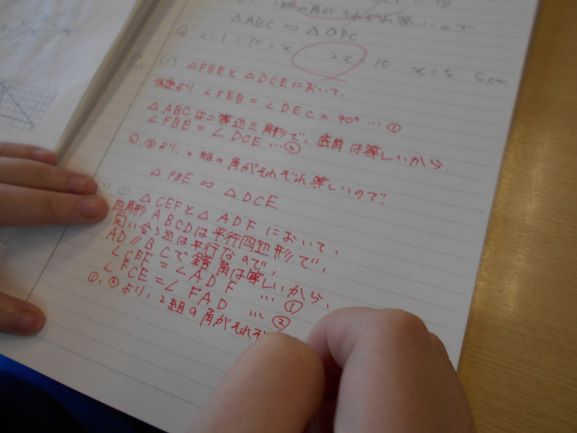 の角がそれぞれ等しいので
△ABC ∽ △DPC
② 2:1=10:x 2x=10 x=5 5cm
(1) △FBEと△DCEにおいて、
仮定より ∠FEB=∠DEC=90° … ①
△ABCは二等辺三角形で、底角は等しいから、
∠FBE=∠DCE … ②
①、②より、2組の角がそれぞれ等しいので、
△FBE ∽ △DCE
① △CEFと△ADFにおいて、
四角形ABCDは平行四辺形で、
向い合う辺は平行なので、
AD//BCで錯角は等しいから、
∠CEF=∠ADF … ①
∠FCE=∠FAD … ②
①、②より、2組の角がそれぞ